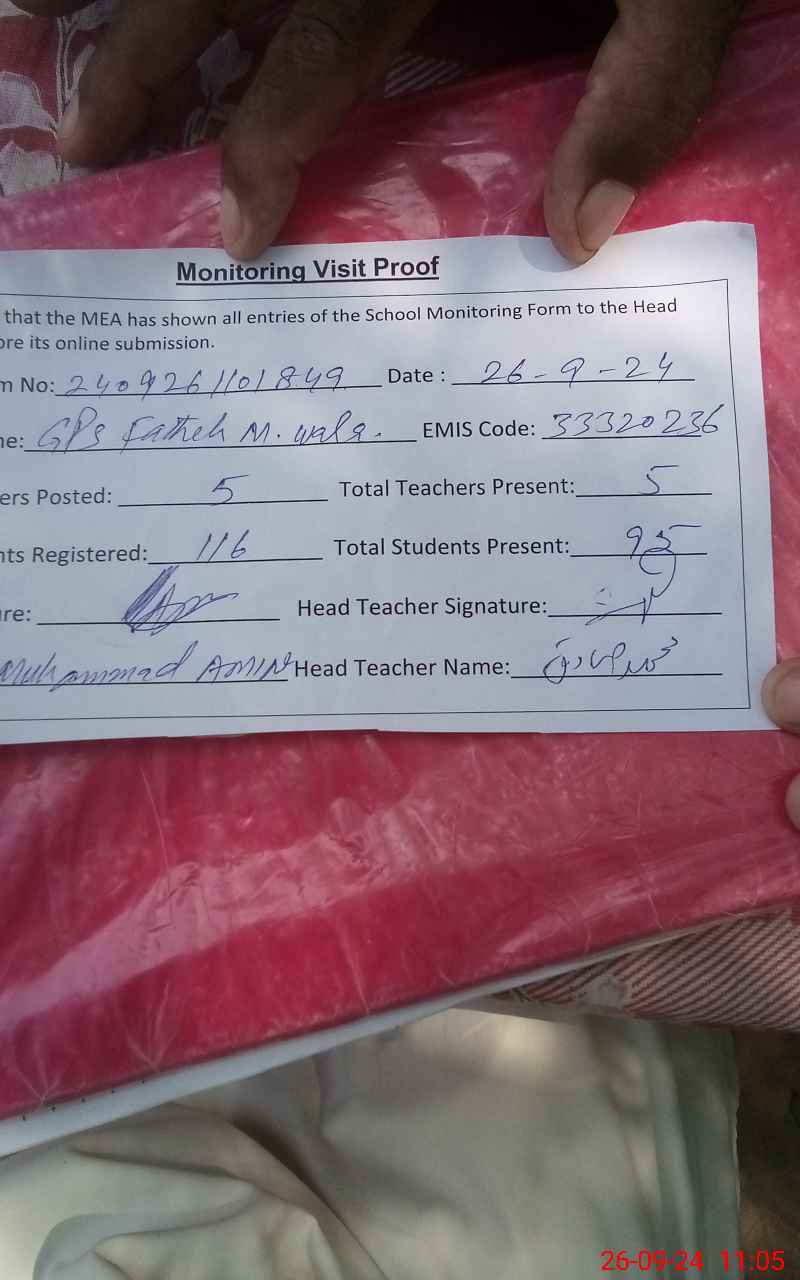 Monitoring Visit Proof
that the MEA has shown all entries of the School Monitoring Form to the Head
ore its online submission.
m No: 2409261101849 Date : 26-9-24
ne: GPS Fatheh M. wala. EMIS Code: 33320236
ers Posted: 5 Total Teachers Present: 5
nts Registered: 116 Total Students Present: 95
re: Head Teacher Signature:
Muhammad AMIN Head Teacher Name:
26-09-24 11:05